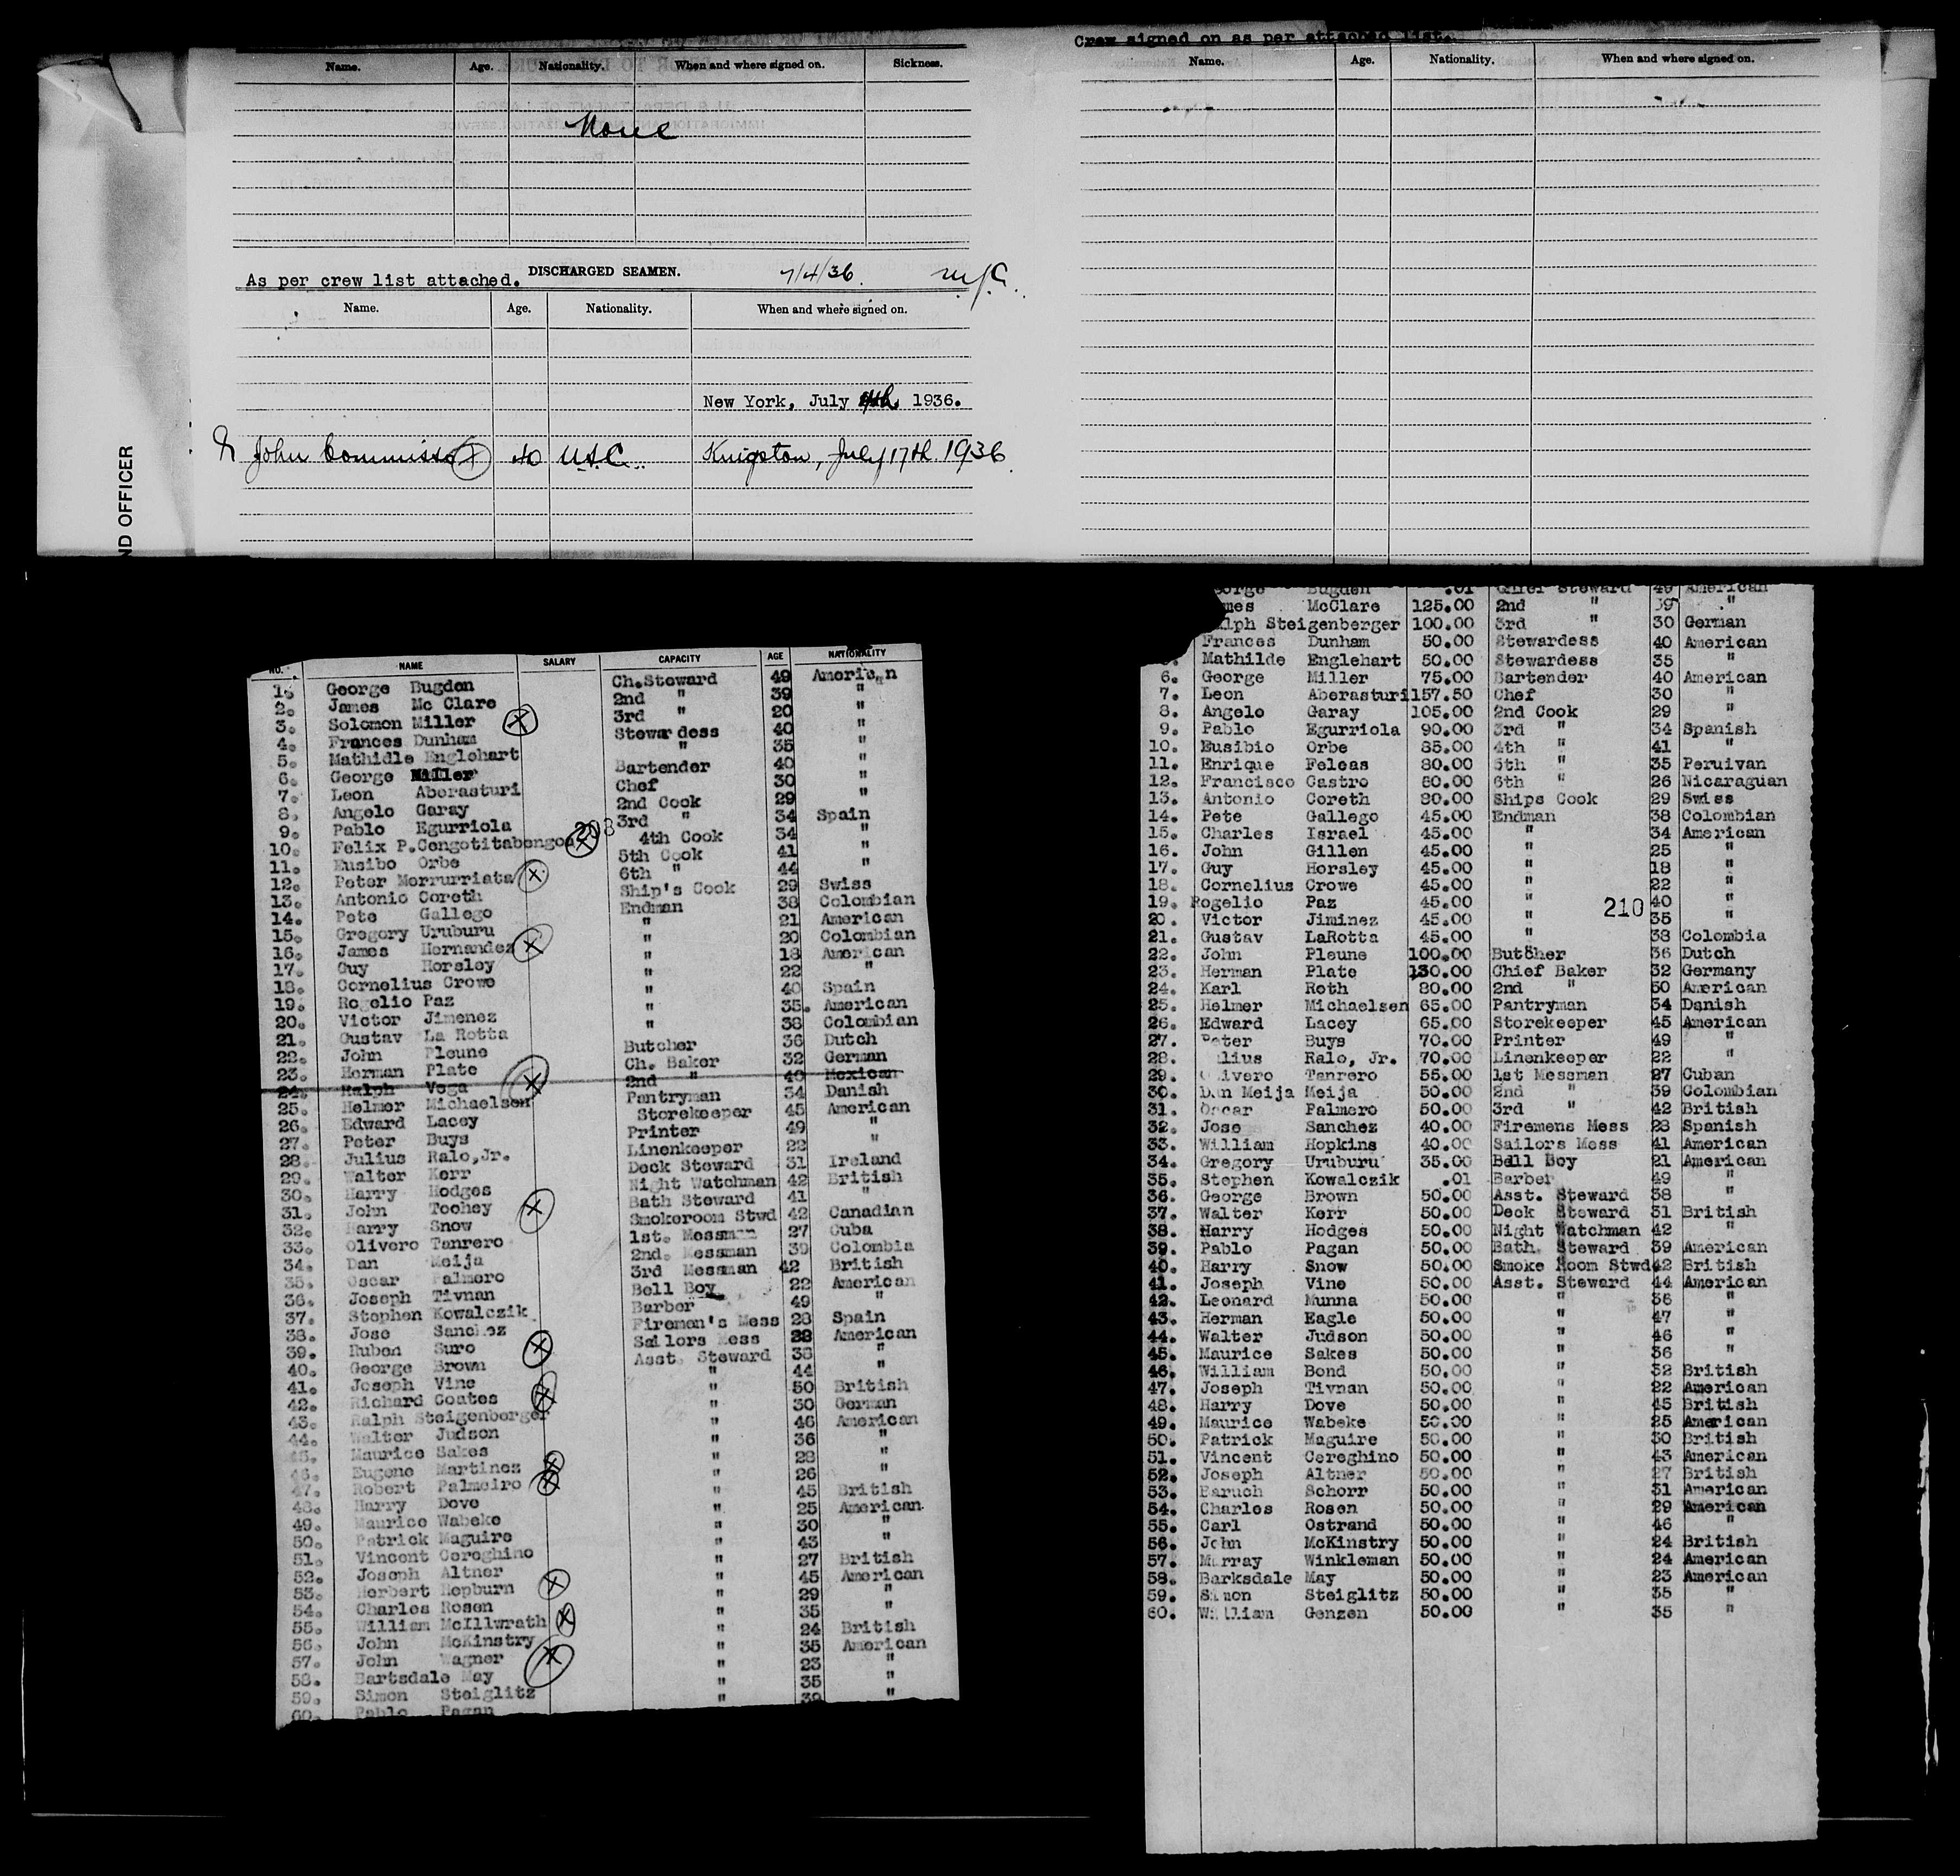 Name. Age. Nationality. When and where signed on. Sickness.
None
DISCHARGED SEAMEN. 7/4/36
As per crew list attached.
Name. Age. Nationality. When and where signed on.
New York, July 4th 1936.
John Commisso 40 U.S.C. Kingston, July 17th 1936
ND OFFICER
Crew signed on as per attached list.
Name. Age. Nationality. When and where signed on.
NO. NAME SALARY CAPACITY AGE NATIONALITY
1. George Bugden Ch.Steward 49 American
2. James Mc Clare 2nd " 39 "
3. Solomon Miller 3rd " 20 "
4. Frances Dunham Stewardess 40 "
5. Mathidle Englehart " 35 "
6. George Miller Bartender 40 "
7. Leon Aberasturi Chef 30 "
8. Angelo Garay 2nd Cook 29 "
9. Pablo Egurriola 3rd " 34 Spain
10. Felix P.Cengotitabengoa 208 4th Cook 34 "
11. Eusibo Orbe 5th Cook 41 "
12. Peter Morrurriata 6th " 44 "
13. Antonio Coreth Ship's Cook 29 Swiss
14. Pete Gallego Endman 38 Colombian
15. Gregory Uruburu " 21 American
16. James Hernandez " 20 Colombian
17. Guy Horsley " 18 American
18. Cornelius Crowe " 22 "
19. Rogelio Paz " 40 Spain
20. Victor Jimenez " 35. American
21. Gustav La Rotta " 38 Colombian
22. John Pleune Butcher 36 Dutch
23. Herman Plate Ch. Baker 32 German
24. Ralph Vega 2nd " 40 Mexican
25. Helmer Michaelsen Pantryman 34 Danish
26. Edward Lacey Storekeeper 45 American
27. Peter Buys Printer 49 "
28. Julius Ralo,Jr. Linenkeeper 22 "
29. Walter Kerr Deck Steward 31 Ireland
30. Harry Hodges Night Watchman 42 British
31. John Toohey Bath Steward 41 "
32. Harry Snow Smokeroom Stwd 42 Canadian
33. Olivero Tanrero 1st. Messman 27 Cuba
34. Dan Meija 2nd. Messman 39 Colombia
35. Oscar Palmero 3rd Messman 42 British
36. Joseph Tivnan Bell Boy 22 American
37. Stephen Kowalczik Barber 49 "
38. Jose Sanchez Fireman's Mess 28 Spain
39. Ruben Suro Sailors Mess 28 American
40. George Brown Asst. Steward 38 "
41. Joseph Vine " 44 "
42. Richard Coates " 50 British
43. Ralph Steigenberger " 30 German
44. Walter Judson " 46 American
45. Maurice Sakes " 36 "
46. Eugene Martinez " 28 "
47. Robert Palmeiro " 26 "
48. Harry Dove " 45 British
49. Maurice Wabeke " 25 American
50. Patrick Maguire " 30 "
51. Vincent Cereghino " 43 "
52. Joseph Altner " 27 British
53. Herbert Hepburn " 45 American
54. Charles Rosen " 29 "
55. William McIllwrath " 35 "
56. John McKinstry " 24 British
57. John Wagner " 35 American
58. Bartsdale May " 23 "
59. Simon Steiglitz " 35 "
60. Pablo Pagan " 39 "
George Bugden .01 Chief Steward 49 American
mes McClare 125.00 2nd " 39 "
alph Steigenberger 100.00 3rd " 30 German
Frances Dunham 50.00 Stewardess 40 American
Mathilde Englehart 50.00 Stewardess 35 "
6. George Miller 75.00 Bartender 40 American
7. Leon Aberasturi 157.50 Chef 30 "
8. Angelo Garay 105.00 2nd Cook 29 "
9. Pablo Egurriola 90.00 3rd " 34 Spanish
10. Eusibio Orbe 85.00 4th " 41 "
11. Enrique Feleas 80.00 5th " 35 Peruivan
12. Francisco Castro 80.00 6th " 26 Nicaraguan
13. Antonio Coreth 80.00 Ships Cook 29 Swiss
14. Pete Gallego 45.00 Endman 38 Colombian
15. Charles Israel 45.00 " 34 American
16. John Gillen 45.00 " 25 "
17. Guy Horsley 45.00 " 18 "
18. Cornelius Crowe 45.00 " 22 "
19. Rogelio Paz 45.00 " 210 40 "
20. Victor Jiminez 45.00 " 35 "
21. Gustav LaRotta 45.00 " 38 Colombia
22. John Pleune 100.00 Butcher 36 Dutch
23. Herman Plate 130.00 Chief Baker 32 Germany
24. Karl Roth 80.00 2nd " 50 American
25. Helmer Michaelsen 65.00 Pantryman 34 Danish
26. Edward Lacey 65.00 Storekeeper 45 American
27. Peter Buys 70.00 Printer 49 "
28. lius Ralo, Jr. 70.00 Linenkeeper 22 "
29. Olivero Tanrero 55.00 1st Messman 27 Cuban
30. Dan Meija Meija 50.00 2nd " 39 Colombian
31. Oscar Palmero 50.00 3rd " 42 British
32. Jose Sanchez 40.00 Firemens Mess 28 Spanish
33. William Hopkins 40.00 Sailors Mess 41 American
34. Gregory Uruburu 35.00 Bell Boy 21 American
35. Stephen Kowalczik .01 Barber 49 "
36. George Brown 50.00 Asst. Steward 38 "
37. Walter Kerr 50.00 Deck Steward 31 British
38. Harry Hodges 50.00 Night Watchman 42 "
39. Pablo Pagan 50.00 Bath. Steward 39 American
40. Harry Snow 50.00 Smoke Room Stwd 42 British
41. Joseph Vine 50.00 Asst. Steward 44 American
42. Leonard Munna 50.00 " 36 "
43. Herman Eagle 50.00 " 47 "
44. Walter Judson 50.00 " 46 "
45. Maurice Sakes 50.00 " 36 "
46. William Bond 50.00 " 32 British
47. Joseph Tivnan 50.00 " 22 American
48. Harry Dove 50.00 " 45 British
49. Maurice Wabeke 50.00 " 25 American
50. Patrick Maguire 50.00 " 30 British
51. Vincent Cereghino 50.00 " 43 American
52. Joseph Altner 50.00 " 27 British
53. Baruch Schorr 50.00 " 31 American
54. Charles Rosen 50.00 " 29 American
55. Carl Ostrand 50.00 " 46 "
56. John McKinstry 50.00 " 24 British
57. Murray Winkleman 50.00 " 24 American
58. Barksdale May 50.00 " 23 American
59. Simon Steiglitz 50.00 " 35 "
60. William Genzen 50.00 " 35 "